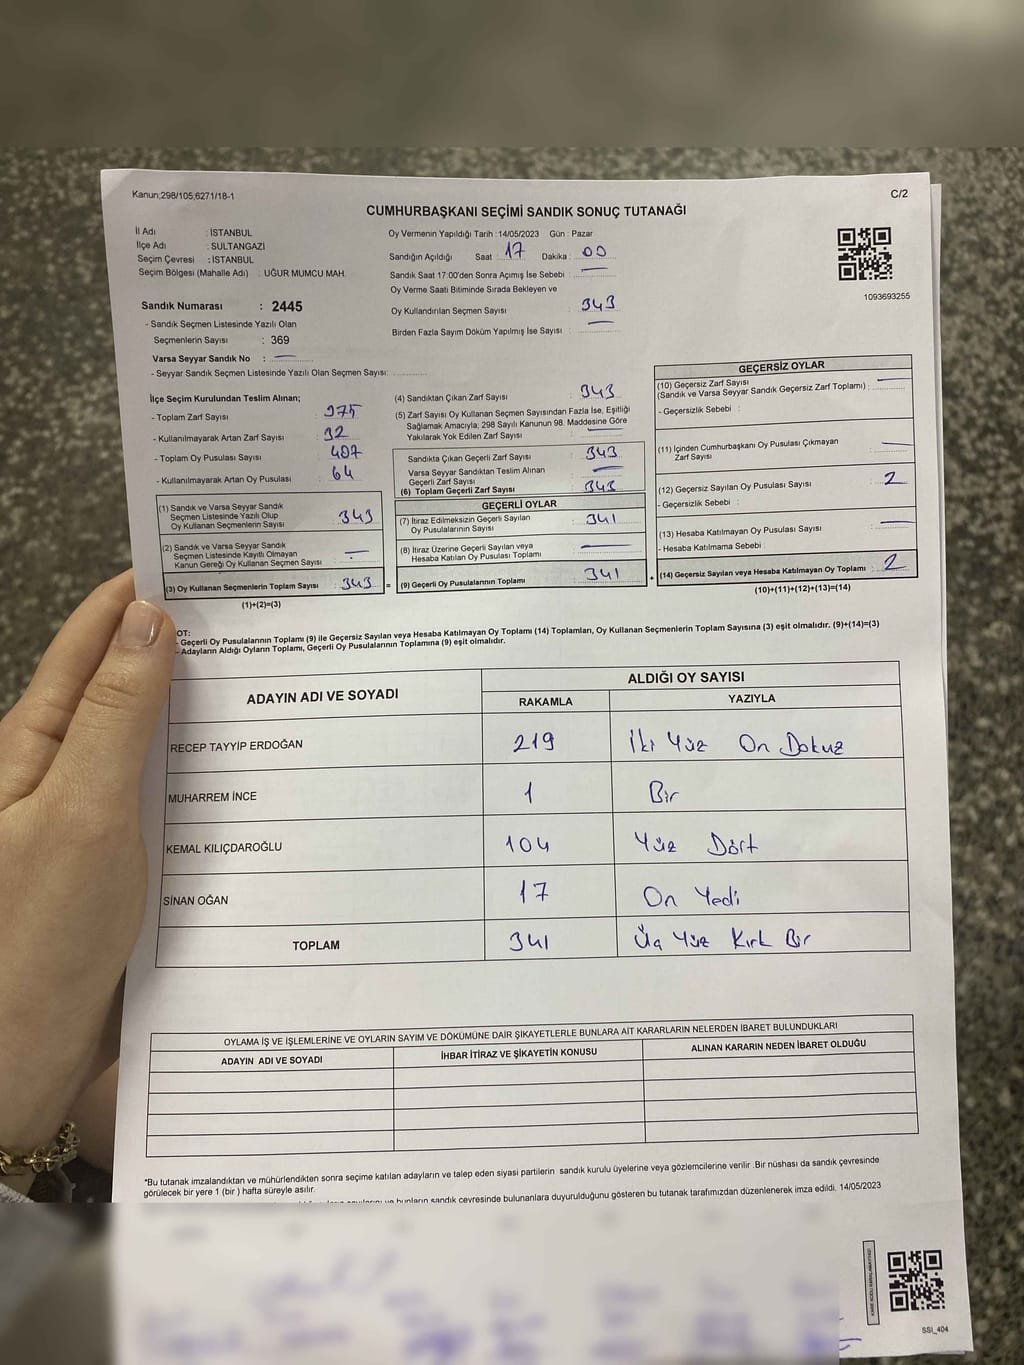 Kanun;298/105;6271/18-1
C/2
CUMHURBAŞKANI SEÇİMİ SANDIK SONUÇ TUTANAĞI
İl Adı : İSTANBUL
İlçe Adı : SULTANGAZİ
Seçim Çevresi : İSTANBUL
Seçim Bölgesi (Mahalle Adı) : UĞUR MUMCU MAH.
Sandık Numarası : 2445
- Sandık Seçmen Listesinde Yazılı Olan
Seçmenlerin Sayısı : 369
Varsa Seyyar Sandık No :
- Seyyar Sandık Seçmen Listesinde Yazılı Olan Seçmen Sayısı:
Oy Vermenin Yapıldığı Tarih :14/05/2023 Gün : Pazar
Sandığın Açıldığı Saat : 17 Dakika : 00
Sandık Saat 17:00'den Sonra Açımış İse Sebebi :
Oy Verme Saati Bitiminde Sırada Bekleyen ve
Oy Kullandırılan Seçmen Sayısı : 343
Birden Fazla Sayım Döküm Yapılmış İse Sayısı :
1093693255
İlçe Seçim Kurulundan Teslim Alınan;
- Toplam Zarf Sayısı : 375
- Kullanılmayarak Artan Zarf Sayısı : 32
- Toplam Oy Pusulası Sayısı : 407
- Kullanılmayarak Artan Oy Pusulası : 64
(1) Sandık ve Varsa Seyyar Sandık
Seçmen Listesinde Yazılı Olup
Oy Kullanan Seçmenlerin Sayısı : 343
(2) Sandık ve Varsa Seyyar Sandık
Seçmen Listesinde Kayıtlı Olmayan
Kanun Gereği Oy Kullanan Seçmen Sayısı :
(3) Oy Kullanan Seçmenlerin Toplam Sayısı : 343 =
(1)+(2)=(3)
(4) Sandıktan Çıkan Zarf Sayısı : 343
(5) Zarf Sayısı Oy Kullanan Seçmen Sayısından Fazla İse, Eşitliği
Sağlamak Amacıyla; 298 Sayılı Kanunun 98. Maddesine Göre
Yakılarak Yok Edilen Zarf Sayısı :
Sandıkta Çıkan Geçerli Zarf Sayısı : 343
Varsa Seyyar Sandıktan Teslim Alınan
Geçerli Zarf Sayısı :
(6) Toplam Geçerli Zarf Sayısı : 343
GEÇERLİ OYLAR
(7) İtiraz Edilmeksizin Geçerli Sayılan
Oy Pusulalarının Sayısı : 341
(8) İtiraz Üzerine Geçerli Sayılan veya
Hesaba Katılan Oy Pusulası Toplamı :
(9) Geçerli Oy Pusulalarının Toplamı : 341 +
GEÇERSİZ OYLAR
(10) Geçersiz Zarf Sayısı
(Sandık ve Varsa Seyyar Sandık Geçersiz Zarf Toplamı) :
- Geçersizlik Sebebi :
(11) İçinden Cumhurbaşkanı Oy Pusulası Çıkmayan
Zarf Sayısı :
(12) Geçersiz Sayılan Oy Pusulası Sayısı : 2
- Geçersizlik Sebebi :
(13) Hesaba Katılmayan Oy Pusulası Sayısı :
- Hesaba Katılmama Sebebi :
(14) Geçersiz Sayılan veya Hesaba Katılmayan Oy Toplamı : 2
(10)+(11)+(12)+(13)=(14)
OT:
- Geçerli Oy Pusulalarının Toplamı (9) ile Geçersiz Sayılan veya Hesaba Katılmayan Oy Toplamı (14) Toplamları, Oy Kullanan Seçmenlerin Toplam Sayısına (3) eşit olmalıdır. (9)+(14)=(3)
- Adayların Aldığı Oyların Toplamı, Geçerli Oy Pusulalarının Toplamına (9) eşit olmalıdır.
ADAYIN ADI VE SOYADI
ALDIĞI OY SAYISI
RAKAMLA YAZIYLA
RECEP TAYYİP ERDOĞAN 219 İki Yüz On Dokuz
MUHARREM İNCE 1 Bir
KEMAL KILIÇDAROĞLU 104 Yüz Dört
SİNAN OĞAN 17 On Yedi
TOPLAM 341 Üç Yüz Kırk Bir
OYLAMA İŞ VE İŞLEMLERİNE VE OYLARIN SAYIM VE DÖKÜMÜNE DAİR ŞİKAYETLERLE BUNLARA AİT KARARLARIN NELERDEN İBARET BULUNDUKLARI
ADAYIN ADI VE SOYADI İHBAR İTİRAZ VE ŞİKAYETİN KONUSU ALINAN KARARIN NEDEN İBARET OLDUĞU
*Bu tutanak imzalandıktan ve mühürlendikten sonra seçime katılan adayların ve talep eden siyasi partilerin sandık kurulu üyelerine veya gözlemcilerine verilir .Bir nüshası da sandık çevresinde
görülecek bir yere 1 (bir ) hafta süreyle asılır.
ve bunların sandık çevresinde bulunanlara duyurulduğunu gösteren bu tutanak tarafımızdan düzenlenerek imza edildi. 14/05/2023
SSI_404